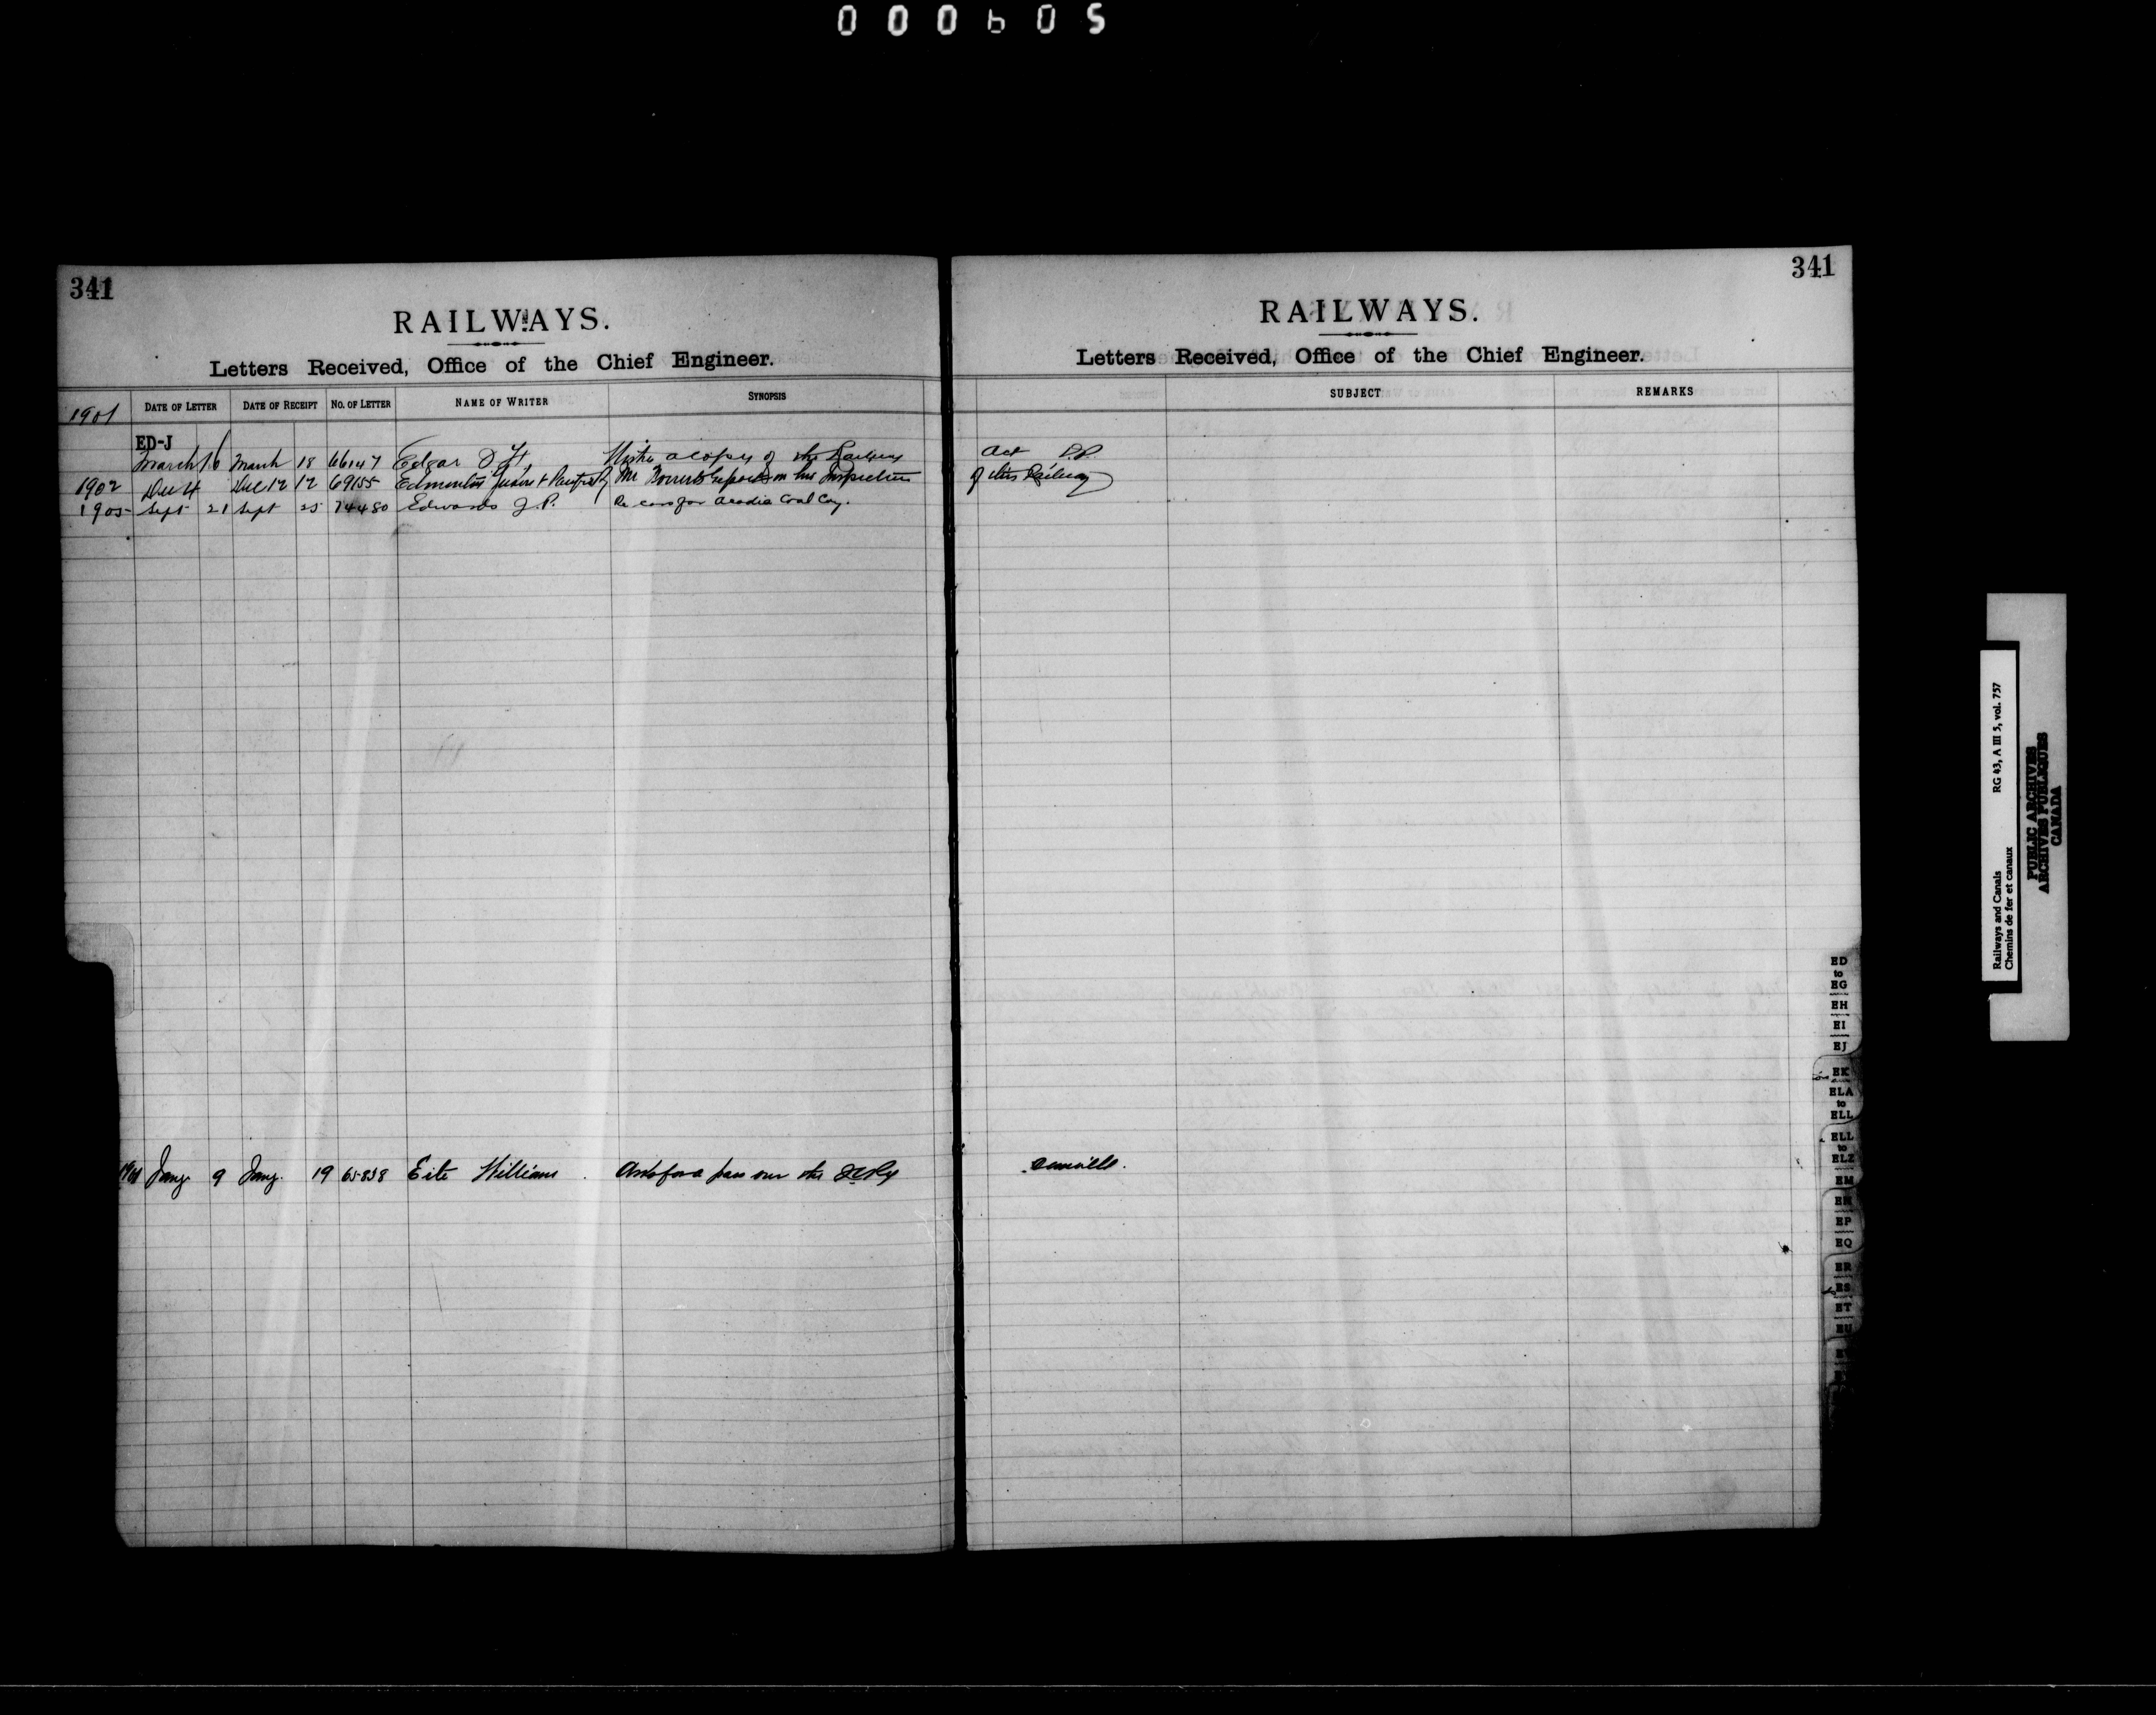 000605
341
RAILWAYS.
Letters Received, Office of the Chief Engineer.
1901 DATE OF LETTER DATE OF RECEIPT NO. OF LETTER NAME OF WRITER SYNOPSIS
ED-J
March 16 March 18 66147 Edgar D. H. Wishes a copy of the Railway
1902 Dec 4 Dec 12 12 69155 Edmonton Yukon & Pacific Ry Mr reports on his Inspection
1905 Sept 21 Sept 25 74480 Edwards J. P. Re cars for Acadia Coal Coy.
1901 Jany 9 Jany. 19 65858 Eite William. Asks for a pass over the
341
RAILWAYS.
Letters Received, Office of the Chief Engineer.
SUBJECT REMARKS
Act
of this Railway
ED
to
EG
EH
EI
EJ
EK
ELA
to
ELL
ELL
to
ELZ
EM
EN
EP
EQ
ER
ES
ET
EU
Railways and Canals RG 43, A III 5, vol. 757
Chemins de fer et canaux
PUBLIC ARCHIVES
ARCHIVES PUBLIQUES
CANADA